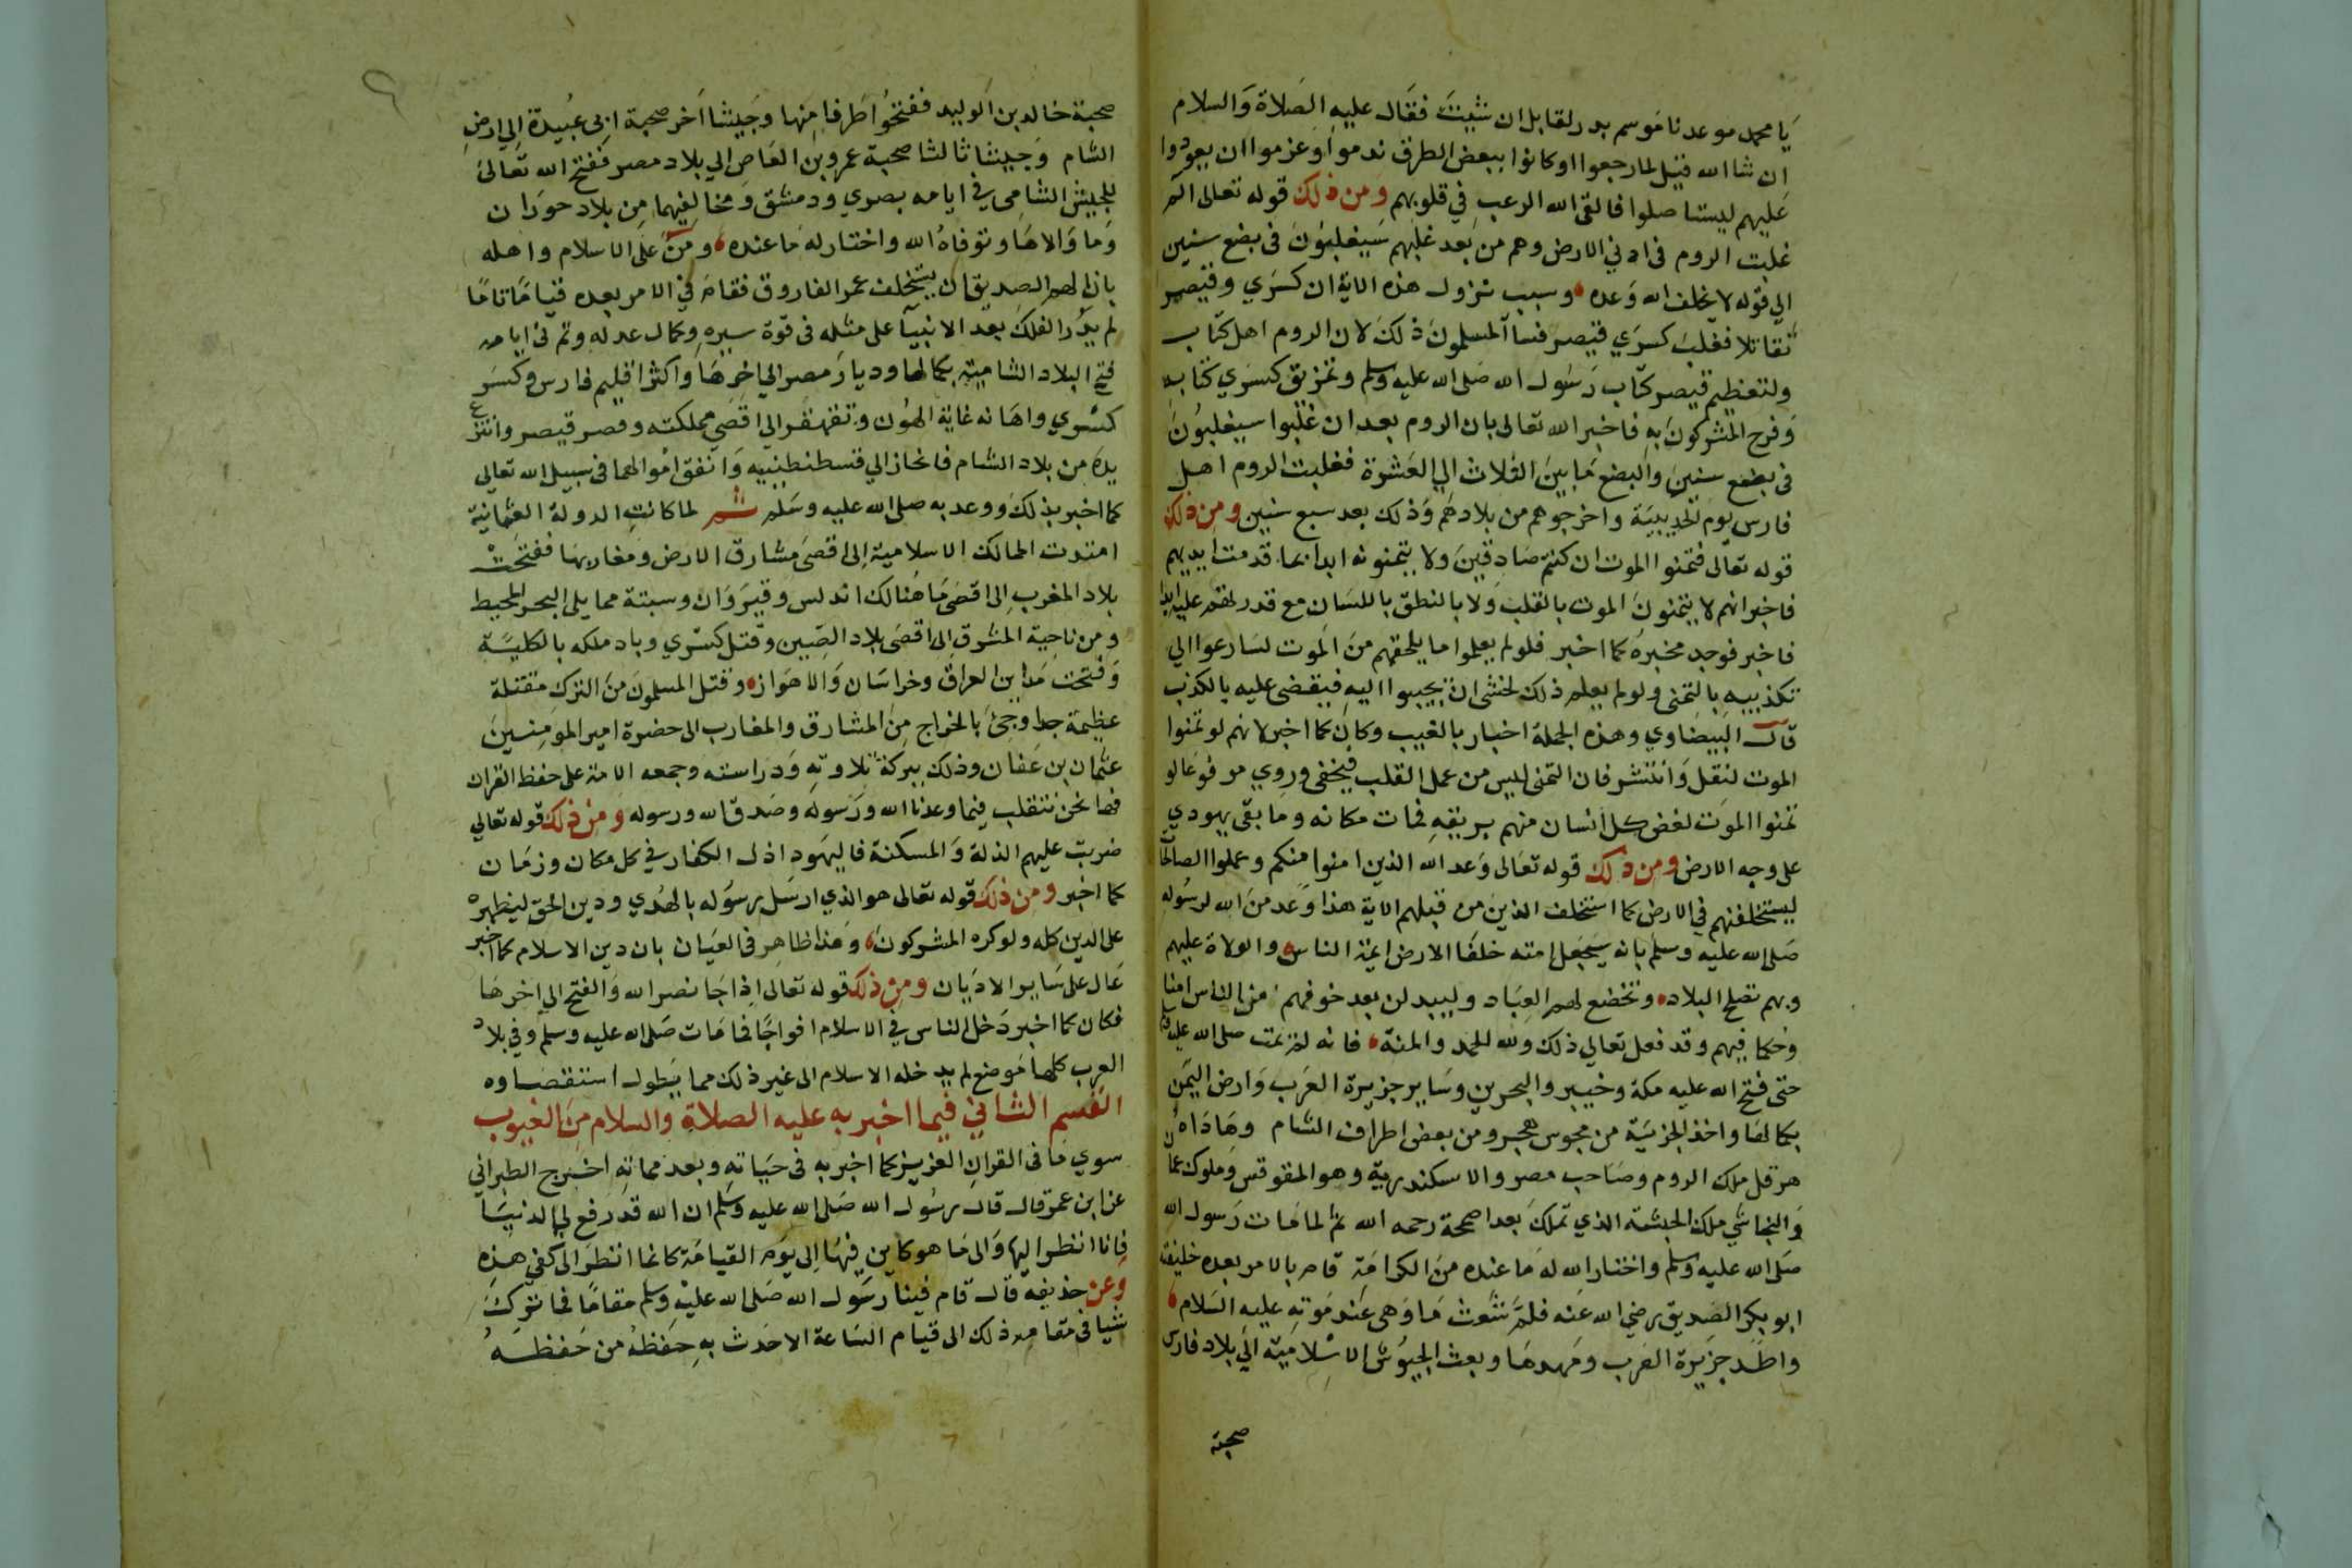 يا محمد موعدنا موسم بدر لقابل ان شيت فقال عليه الصلاة والسلام
ان شا الله قيل لما رجعوا وكانوا ببعض الطرق ندموا وعزموا ان يعودوا
عليهم ليستاصلوا فالقى الله الرعب في قلوبهم ومن ذلك قوله تعالى الم
غلبت الروم في ادني الارض وهم من بعد غلبهم سيغلبون في بضع سنين
الي قوله لا يخلف الله وعده وسبب نزول هذه الاية ان كسري وقيصر
تقاتلا فغلب كسري قيصر فسا المسلمون ذلك لان الروم اهل كتاب
ولتعظيم قيصر كتاب رسول الله صلى الله عليه وسلم وتمزيق كسري كتابه
وفرح المشركون به فاخبر الله تعالى بان الروم بعد ان غلبوا سيغلبون
في بضع سنين والبضع ما بين الثلاث الي العشرة فغلبت الروم اهل
فارس يوم الحديبية واخرجوهم من بلادهم وذلك بعد سبع سنين ومن ذلك
قوله تعالى فتمنوا الموت ان كنتم صادقين ولا يتمنونه ابدا بما قدمت ايديهم
فاخبر انهم لا يتمنون الموت بالقلب ولا بالنطق باللسان مع قدرتهم عليه ابدا
فاخبر فوجد مخبره كما اخبر فلو لم يعلموا ما يلحقهم من الموت لسارعوا الي
تكذيبه بالتمني ولو لم يعلم ذلك لخشي ان يجيبوا اليه فيقضى عليه بالكذب
قال البيضاوي وهذه الجملة اخبار بالغيب وكان كما اخبر لانهم لو تمنوا
الموت لنقل وانتشر فان التمني ليس من عمل القلب فيخفى وروي مرفوعا لو
تمنوا الموت لغص كل انسان منهم بريقه فمات مكانه وما بقى يهودي
على وجه الارض ومن ذلك قوله تعالى وعد الله الذين امنوا منكم وعملوا الصالحات
ليستخلفنهم في الارض كما استخلف الذين من قبلهم الاية هذا وعد من الله لرسوله
صلى الله عليه وسلم بانه سيجعل امته خلفا الارض ايمة الناس والولاة عليهم
وبهم تصلح البلاد وتخضع لهم العباد وليبدلن بعد خوفهم من الناس امنا
وحكما فيهم وقد فعل تعالي ذلك ولله الحمد والمنة فانه لم يمت صلى الله عليه وسلم
حتى فتح الله عليه مكة وخيبر والبحرين وساير جزيرة العرب وارض اليمن
بكمالها واخذ الجزية من مجوس هجر ومن بعض اطراف الشام وهاداه
هرقل ملك الروم وصاحب مصر والاسكندرية وهو المقوقس وملوك عمان
والنجاشي ملك الحبشة الذي تملك بعد اصحمة رحمه الله ثم لما مات رسول الله
صلى الله عليه وسلم واختار الله له ما عنده من الكرامة قام بالامر بعده خليفته
ابو بكر الصديق رضي الله عنه فلم شعث ما وهى عند موته عليه السلام
واطد جزيرة العرب ومهدها وبعث الجيوش الاسلامية الي بلاد فارس
صحبة
٩
صحبة خالد بن الوليد ففتحوا طرفا منها وجيشا اخر صحبة ابي عبيدة الي ارض
الشام وجيشا ثالثا صحبة عمرو بن العاص الي بلاد مصر ففتح الله تعالى
للجيش الشامي في ايامه بصري ودمشق ومخاليفهما من بلاد حوران
وما والاها وتوفاه الله واختار له ما عنده ومن على الاسلام واهله
بان الهم الصديق ان يستخلف عمر الفاروق فقام في الامر بعده قياما تاما
لم يدر الفلك بعد الانبيا على مثله في قوة سيره وكمال عدله وتم في ايامه
فتح البلاد الشامية بكمالها وديار مصر الي اخرها واكثر اقليم فارس وكسر
كسري واهانه غاية الهون وتقهقر الي اقصى مملكته وقصر قيصر وانتزع
يده من بلاد الشام فانحاز الي قسطنطينيه وانفق اموالهما في سبيل الله تعالى
كما اخبر بذلك ووعد به صلى الله عليه وسلم ثم لما كانت الدولة العثمانية
امتدت الممالك الاسلامية الى اقصى مشارق الارض ومغاربها ففتحت
بلاد المغرب الى اقصى ما هنالك اندلس وقيروان وسبتة مما يلي البحر المحيط
ومن ناحية المشرق الى اقصى بلاد الصين وقتل كسري وباد ملكه بالكلية
وفتحت مداين العراق وخراسان والاهواز وقتل المسلمون من الترك مقتلة
عظيمة جدا وجئ بالخراج من المشارق والمغارب الى حضرة امير المومنين
عثمان بن عفان وذلك ببركة تلاوته ودراسته وجمعه الامة على حفظ القران
فها نحن نتقلب فيما وعدنا الله ورسوله وصدق الله ورسوله ومن ذلك قوله تعالي
ضربت عليهم الذلة والمسكنة فاليهود اذل الكفار في كل مكان وزمان
كما اخبر ومن ذلك قوله تعالى هو الذي ارسل رسوله بالهدي ودين الحق ليظهره
على الدين كله ولو كره المشركون وهذا ظاهر في العيان بان دين الاسلام كما اخبر
عال على ساير الاديان ومن ذلك قوله تعالى اذا جا نصر الله والفتح الي اخرها
فكان كما اخبر دخل الناس في الاسلام افواجا فما مات صلى الله عليه وسلم وفي بلاد
العرب كلها موضع لم يدخله الاسلام الى غير ذلك مما يطول استقصاوه
القسم الثاني فيما اخبر به عليه الصلاة والسلام من الغيوب
سوي ما في القران العزيز كما اخبر به في حياته وبعد مماته اخرج الطبراني
عن ابن عمر قال قال رسول الله صلى الله عليه وسلم ان الله قد رفع لي الدنيا
فانا انظر اليها والى ما هو كاين فيها الى يوم القيامة كانما انظر الى كفي هذه
وعن حذيفه قال قام فينا رسول الله صلى الله عليه وسلم مقاما فما ترك
شيا في مقامه ذلك الى قيام الساعة الا حدث به حفظه من حفظه